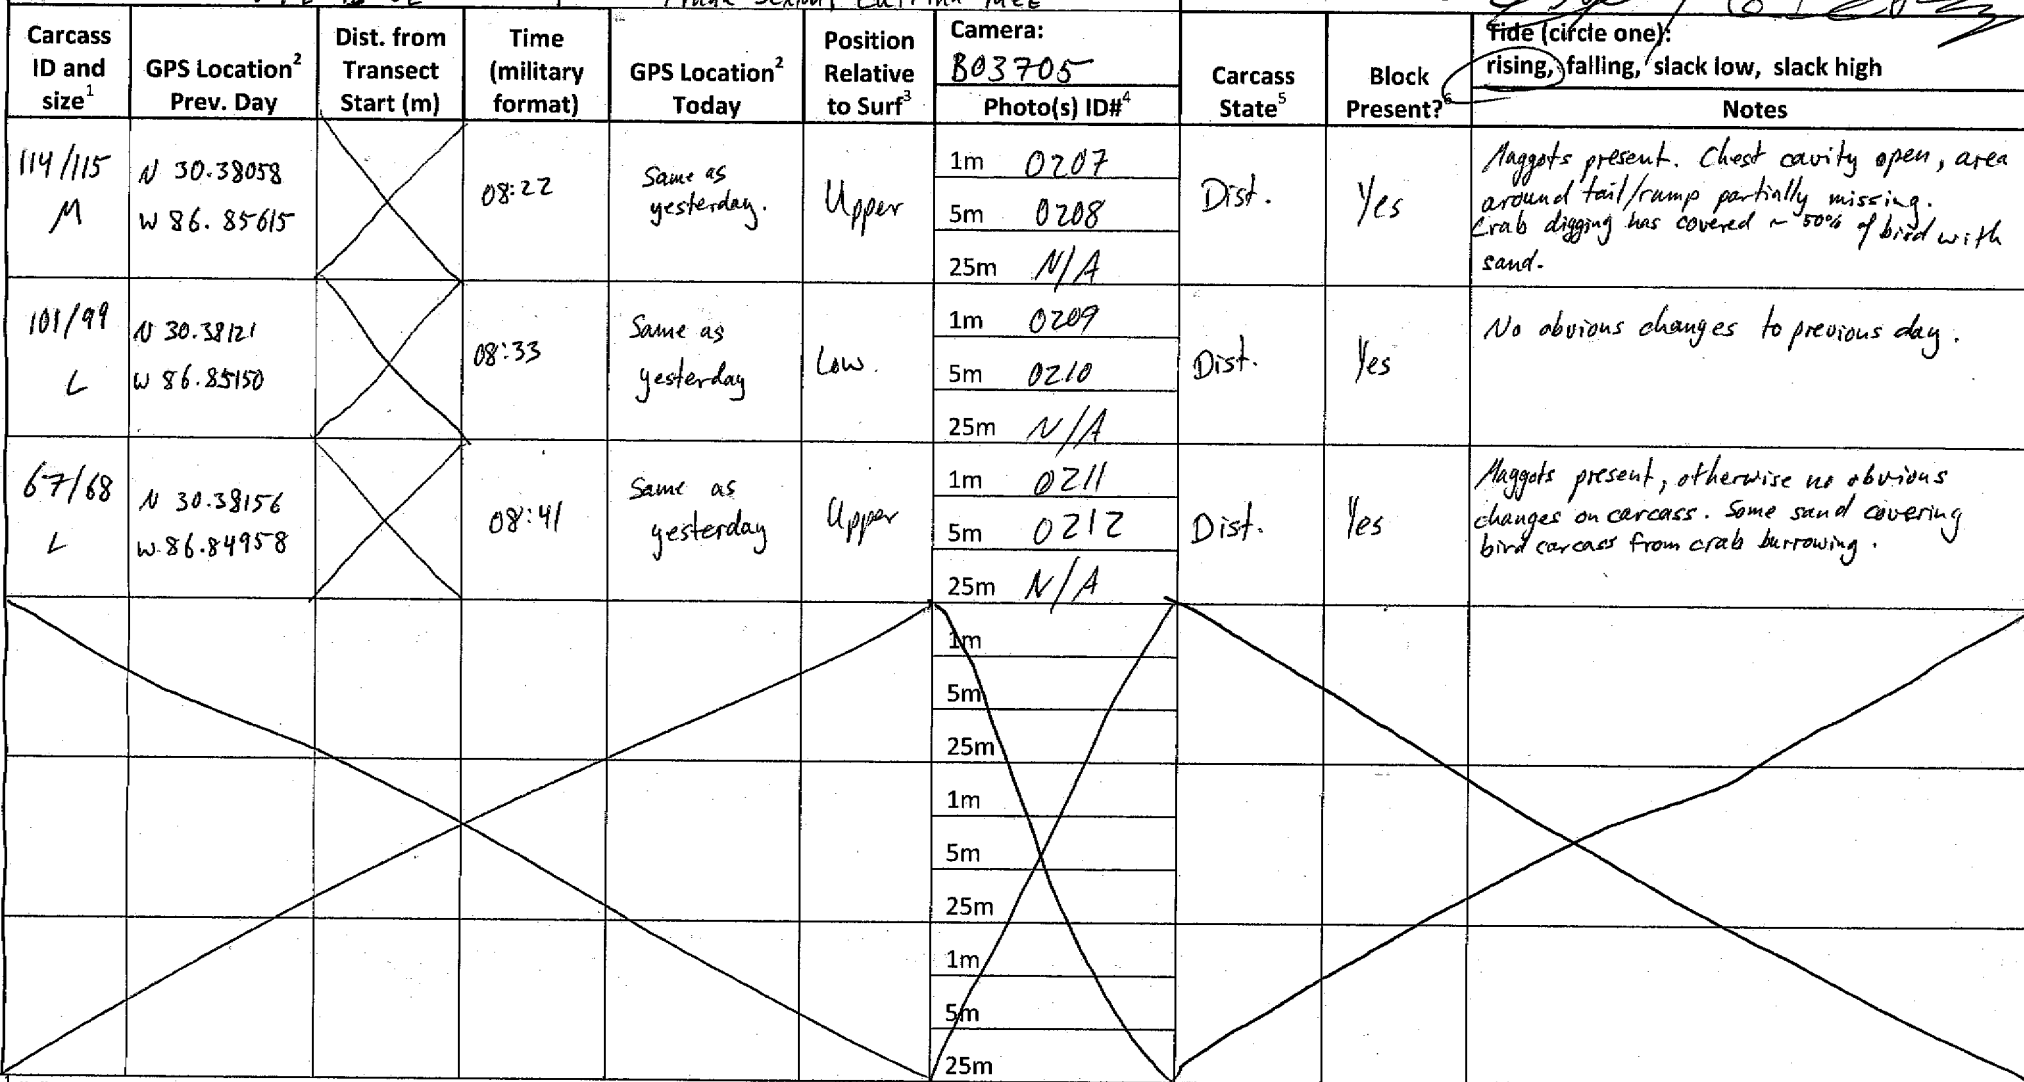 Carcass ID and size1
GPS Location2 Prev. Day
Dist. from Transect Start (m)
Time (military format)
GPS Location2 Today
Position Relative to Surf3
Camera: B03705
Photo(s) ID#4
Carcass State5
Block Present?6
Tide (circle one):
rising, falling, slack low, slack high
Notes
114/115
M
N 30.38058
W 86.85615
08:22
Same as
yesterday.
Upper
1m 0207
5m 0208
25m N/A
Dist.
Yes
Maggots present. Chest cavity open, area
around tail/rump partially missing.
Crab digging has covered ~ 50% of bird with
sand.
101/99
L
N 30.38121
W 86.85150
08:33
Same as
yesterday
Low.
1m 0209
5m 0210
25m N/A
Dist.
Yes
No obvious changes to previous day.
67/68
L
N 30.38156
W 86.84958
08:41
Same as
yesterday
Upper
1m 0211
5m 0212
25m N/A
Dist.
Yes
Maggots present, otherwise no obvious
changes on carcass. Some sand covering
bird carcass from crab burrowing.
1m
5m
25m
1m
5m
25m
1m
5m
25m